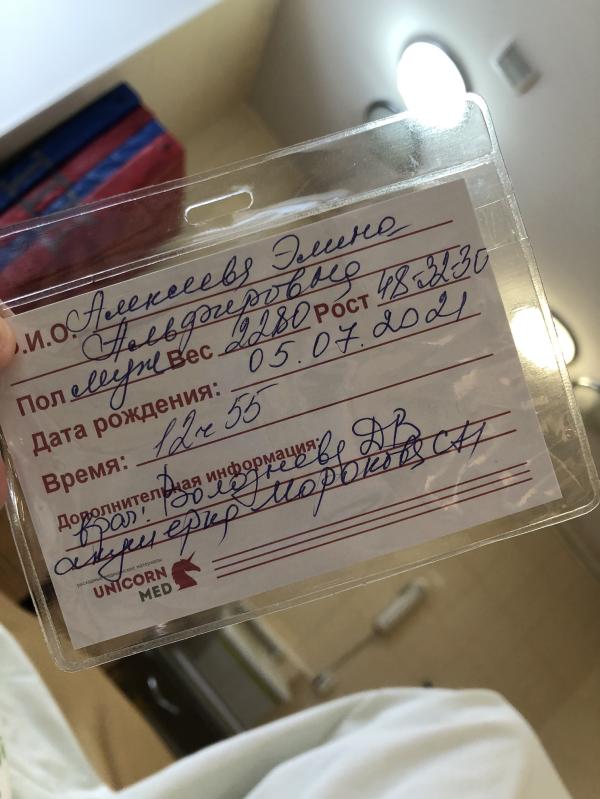 Ф.И.О. Алексеева Элина
Альфировна
Пол муж Вес 2280 Рост 48-32-30
Дата рождения: 05.07.2021
Время: 12ч 55
Дополнительная информация:
Врач: ДВ
акушерка Морокова СН
расходные медицинские материалы
UNICORN
MED